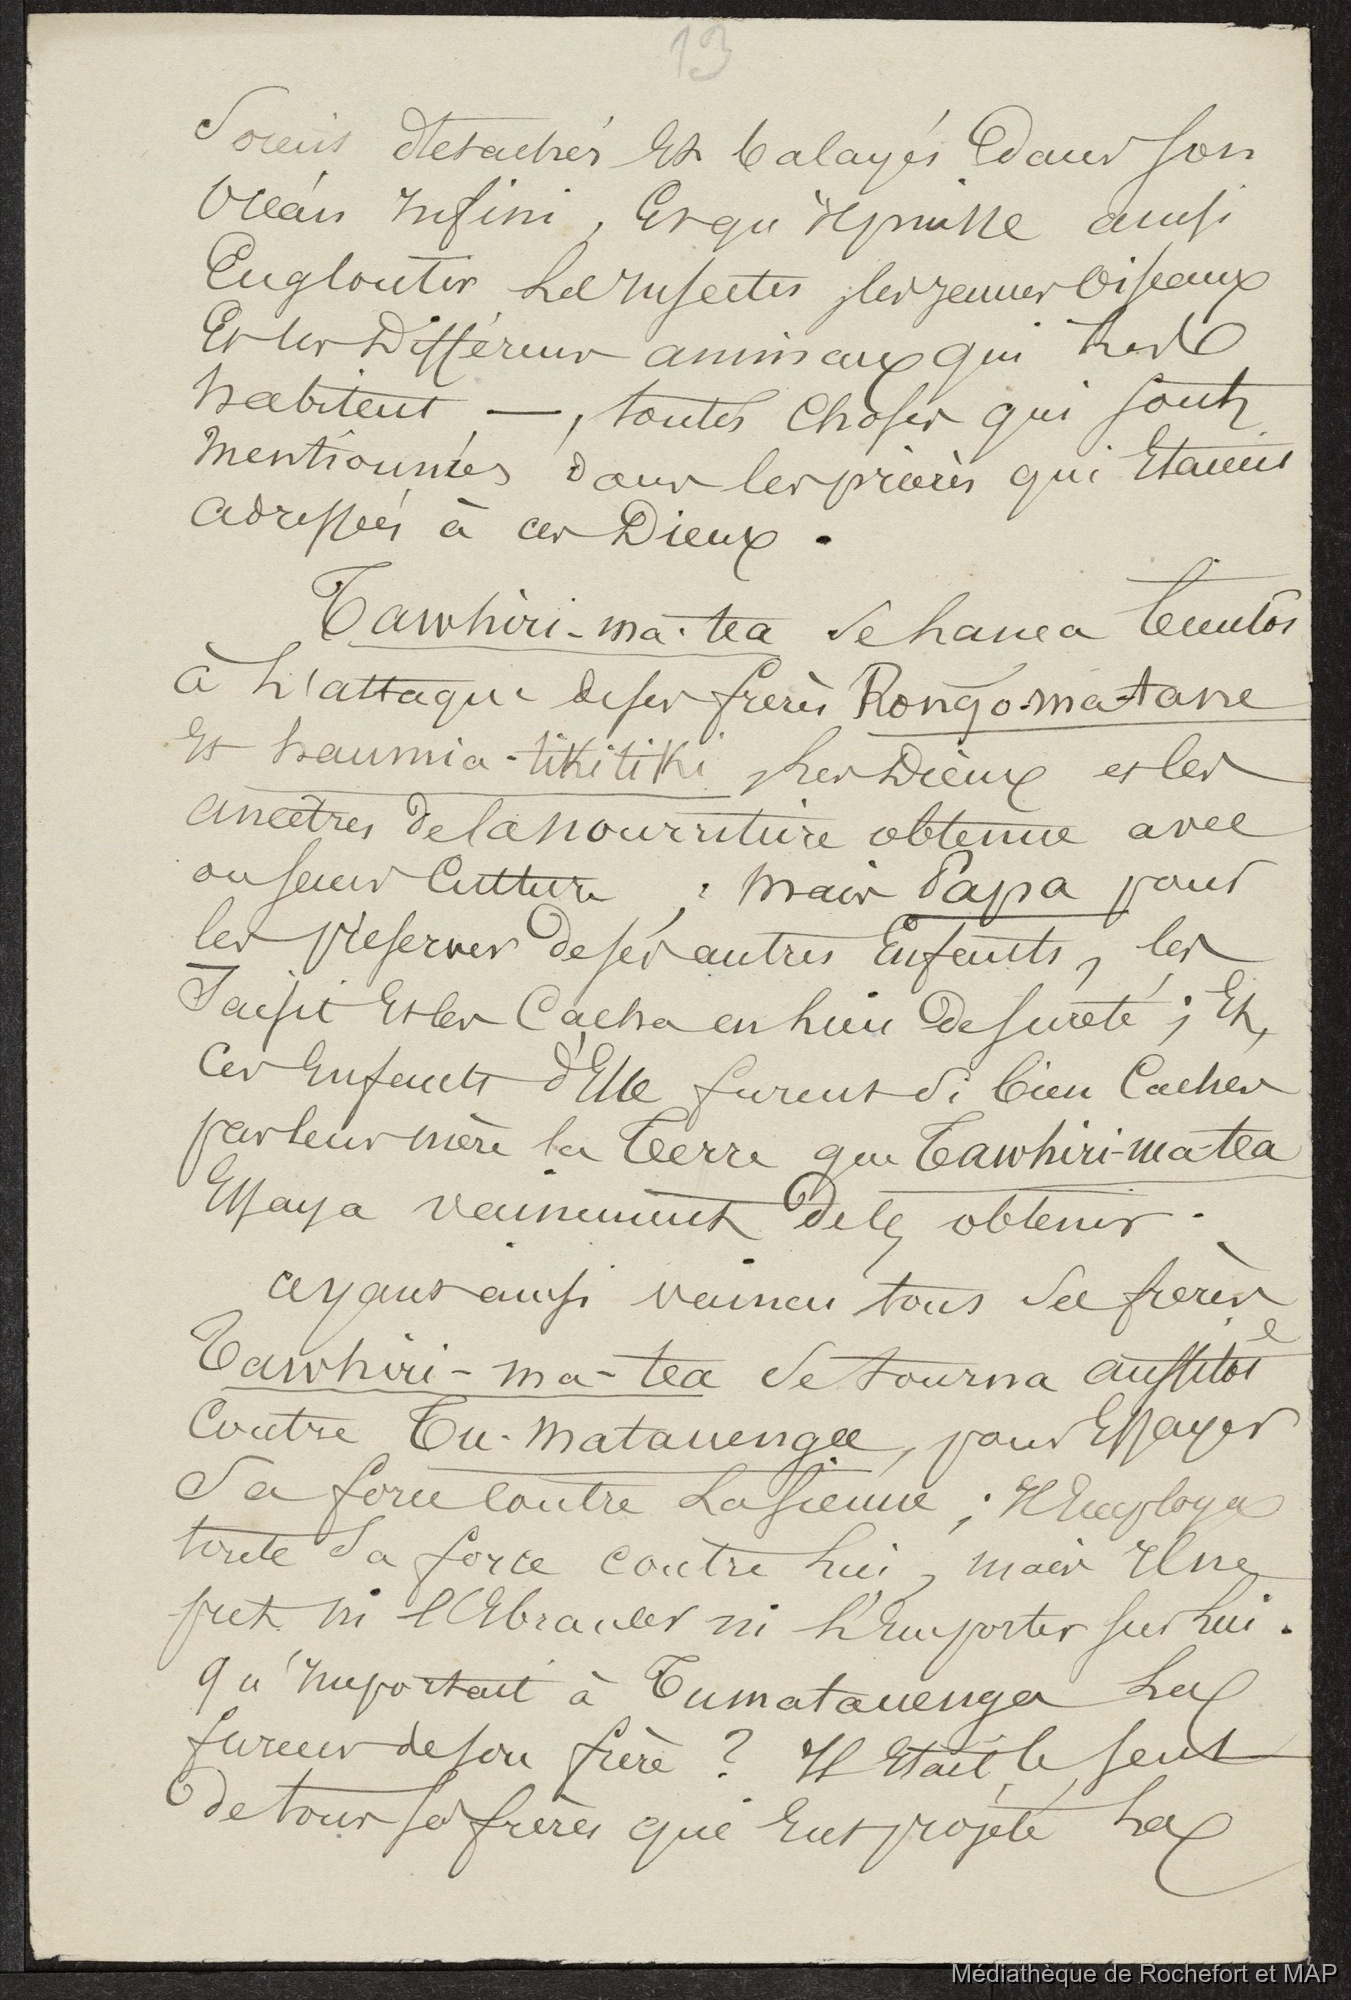 13
Soient détachés Et balayés Dans son
Océan Infini, Et qu'Il puisse ainsi
Engloutir Les Insectes, les jeunes Oiseaux
Et les Différens animaux qui Les
habitent —, toutes Choses qui sont
Mentionnées dans les prières qui Etaient
adressées à ces Dieux.
Tawhiri-ma-tea se lança bientôt
à L'attaque de ses frères Rongo-ma-tane
Et haumia-tikitiki, Les Dieux et les
ancêtres de la nourriture obtenue avec
ou sans Culture ; Mais Papa pour
les préserver de ses autres Enfants, les
Saisit Et les Cacha en Lieu de sureté ; Et,
Ces Enfants d'Elle furent si bien Cachés
par leur mère la Terre que Tawhiri-ma-tea
Essaya vainement de les obtenir.
ayant ainsi vaincu tous ses frères
Tawhiri-ma-tea se tourna aussitot
Contre Tu-matauenga, pour Essayer
Sa force contre La sienne ; Il Employa
toute Sa force contre Lui, mais Il ne
put ni l'Ebranler ni L'Emporter sur Lui.
qu'Importait à Tumatauenga La
fureur de son frère ? Il Etait le seul
De tous ses frères qui Eut projeté La
Médiathèque de Rochefort et MAP